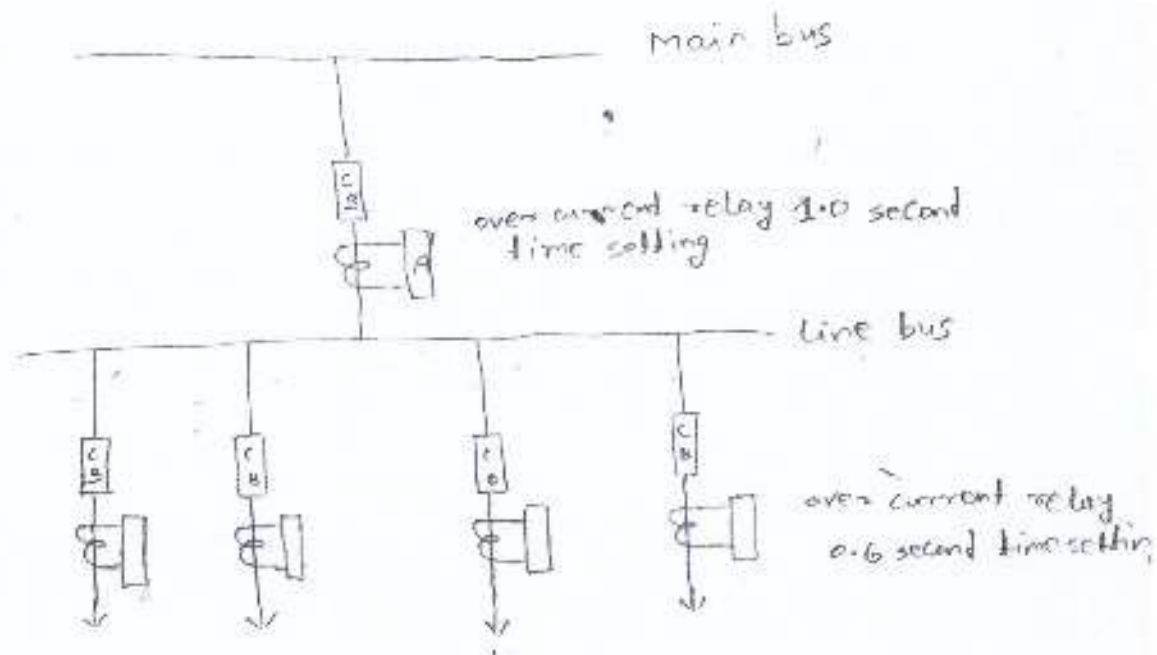 Main bus
CB
over current relay 1.0 second
time setting
A
Line bus
CB
CB
CB
CB
over current relay
0.6 second time settin